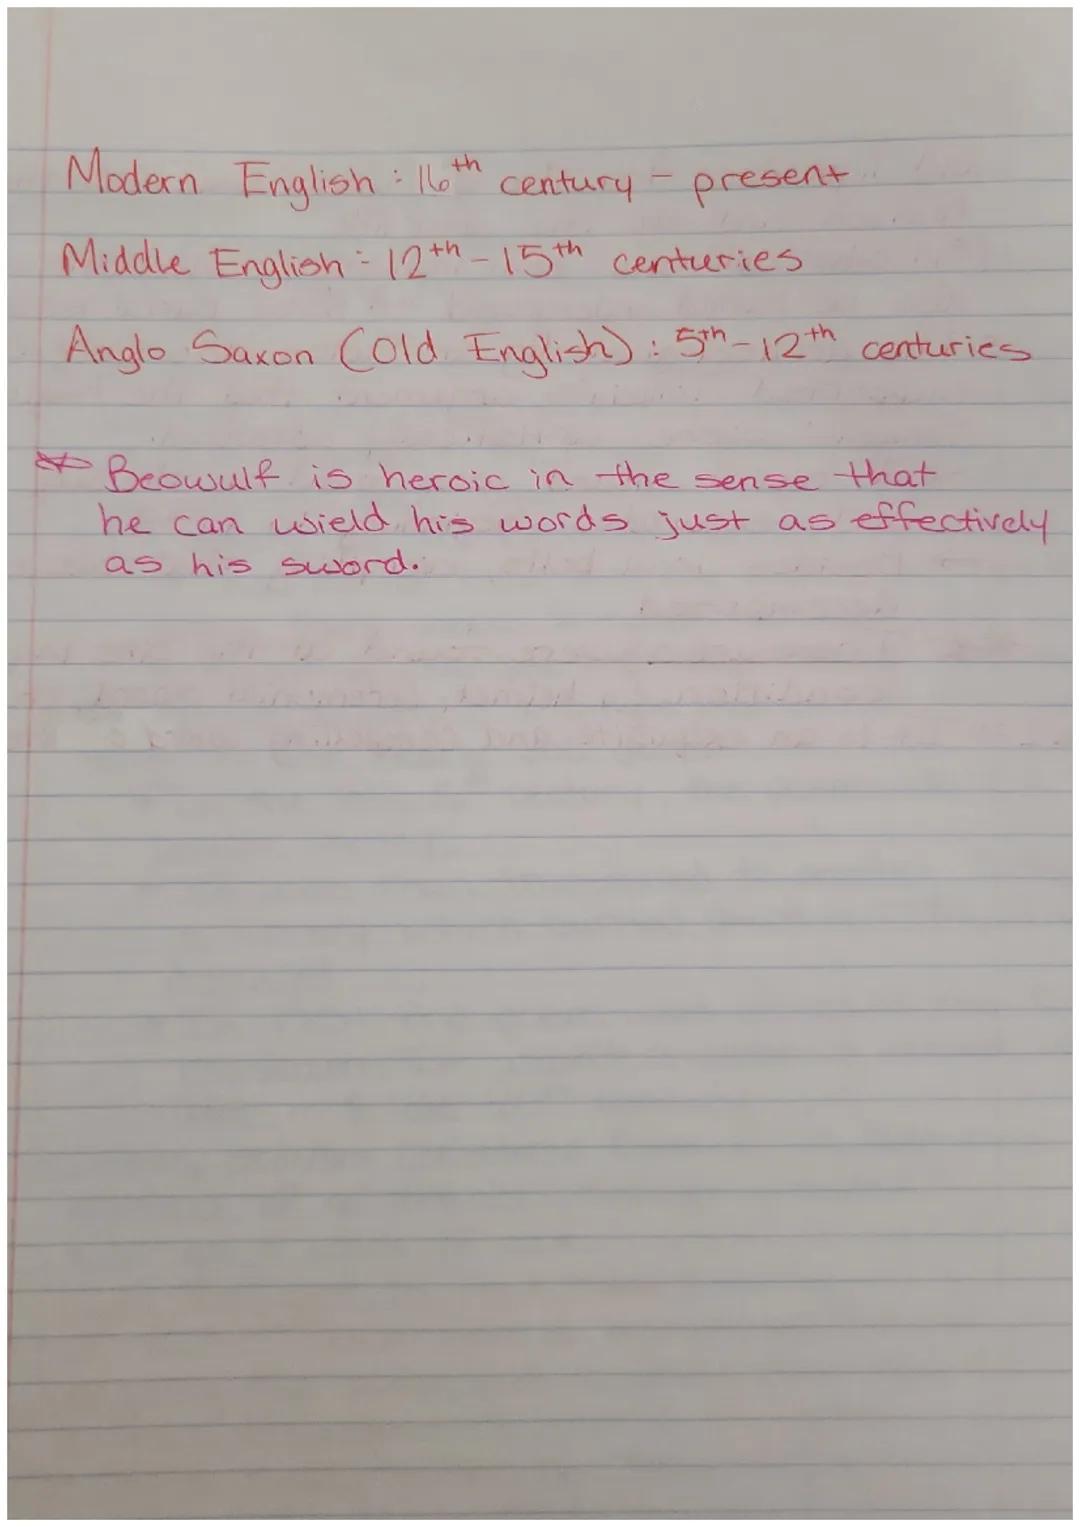 Modern English : 16th century - present
Middle English : 12th - 15th centuries
Anglo Saxon (Old English) : 5th - 12th centuries
Beowulf is heroic in the sense that
he can wield his words just as effectively
as his sword.